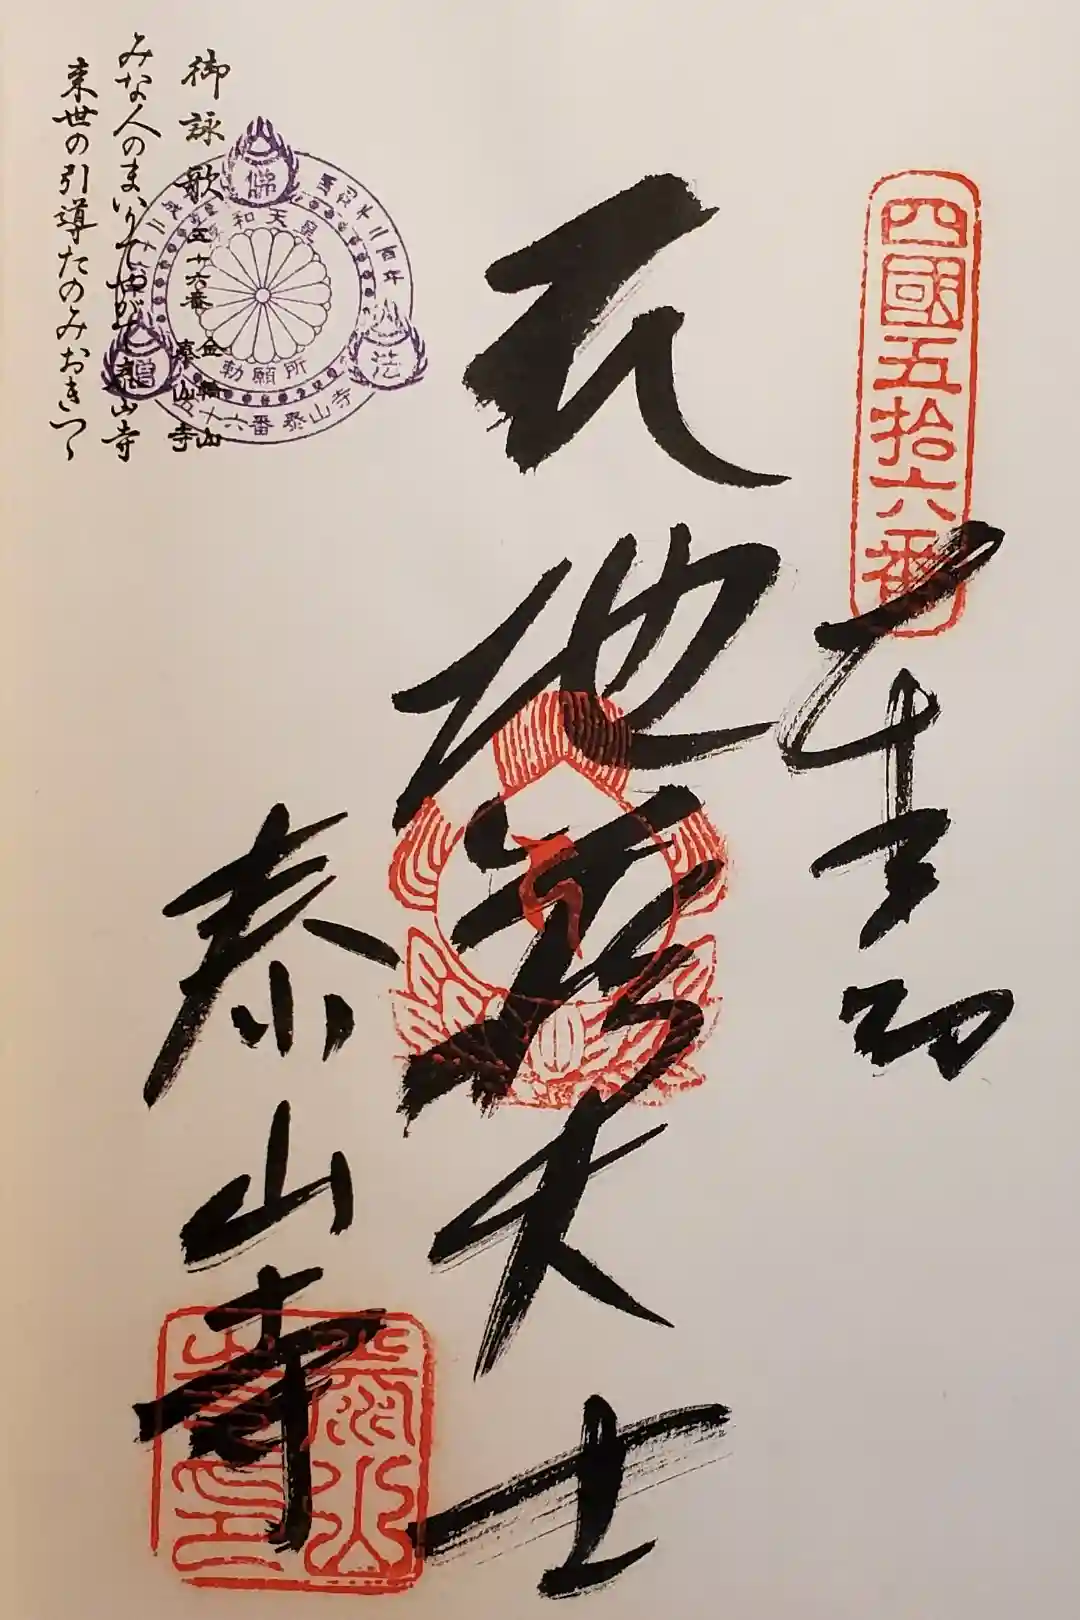 四國五拾六番
奉納
大地蔵大士
泰山寺
泰山寺印
御詠歌 五十六番 金輪山 泰山寺
みな人のまいりてやがて泰山寺
来世の引導たのみおきつゝ
佛
法
僧
勅願所
五十六番 泰山寺